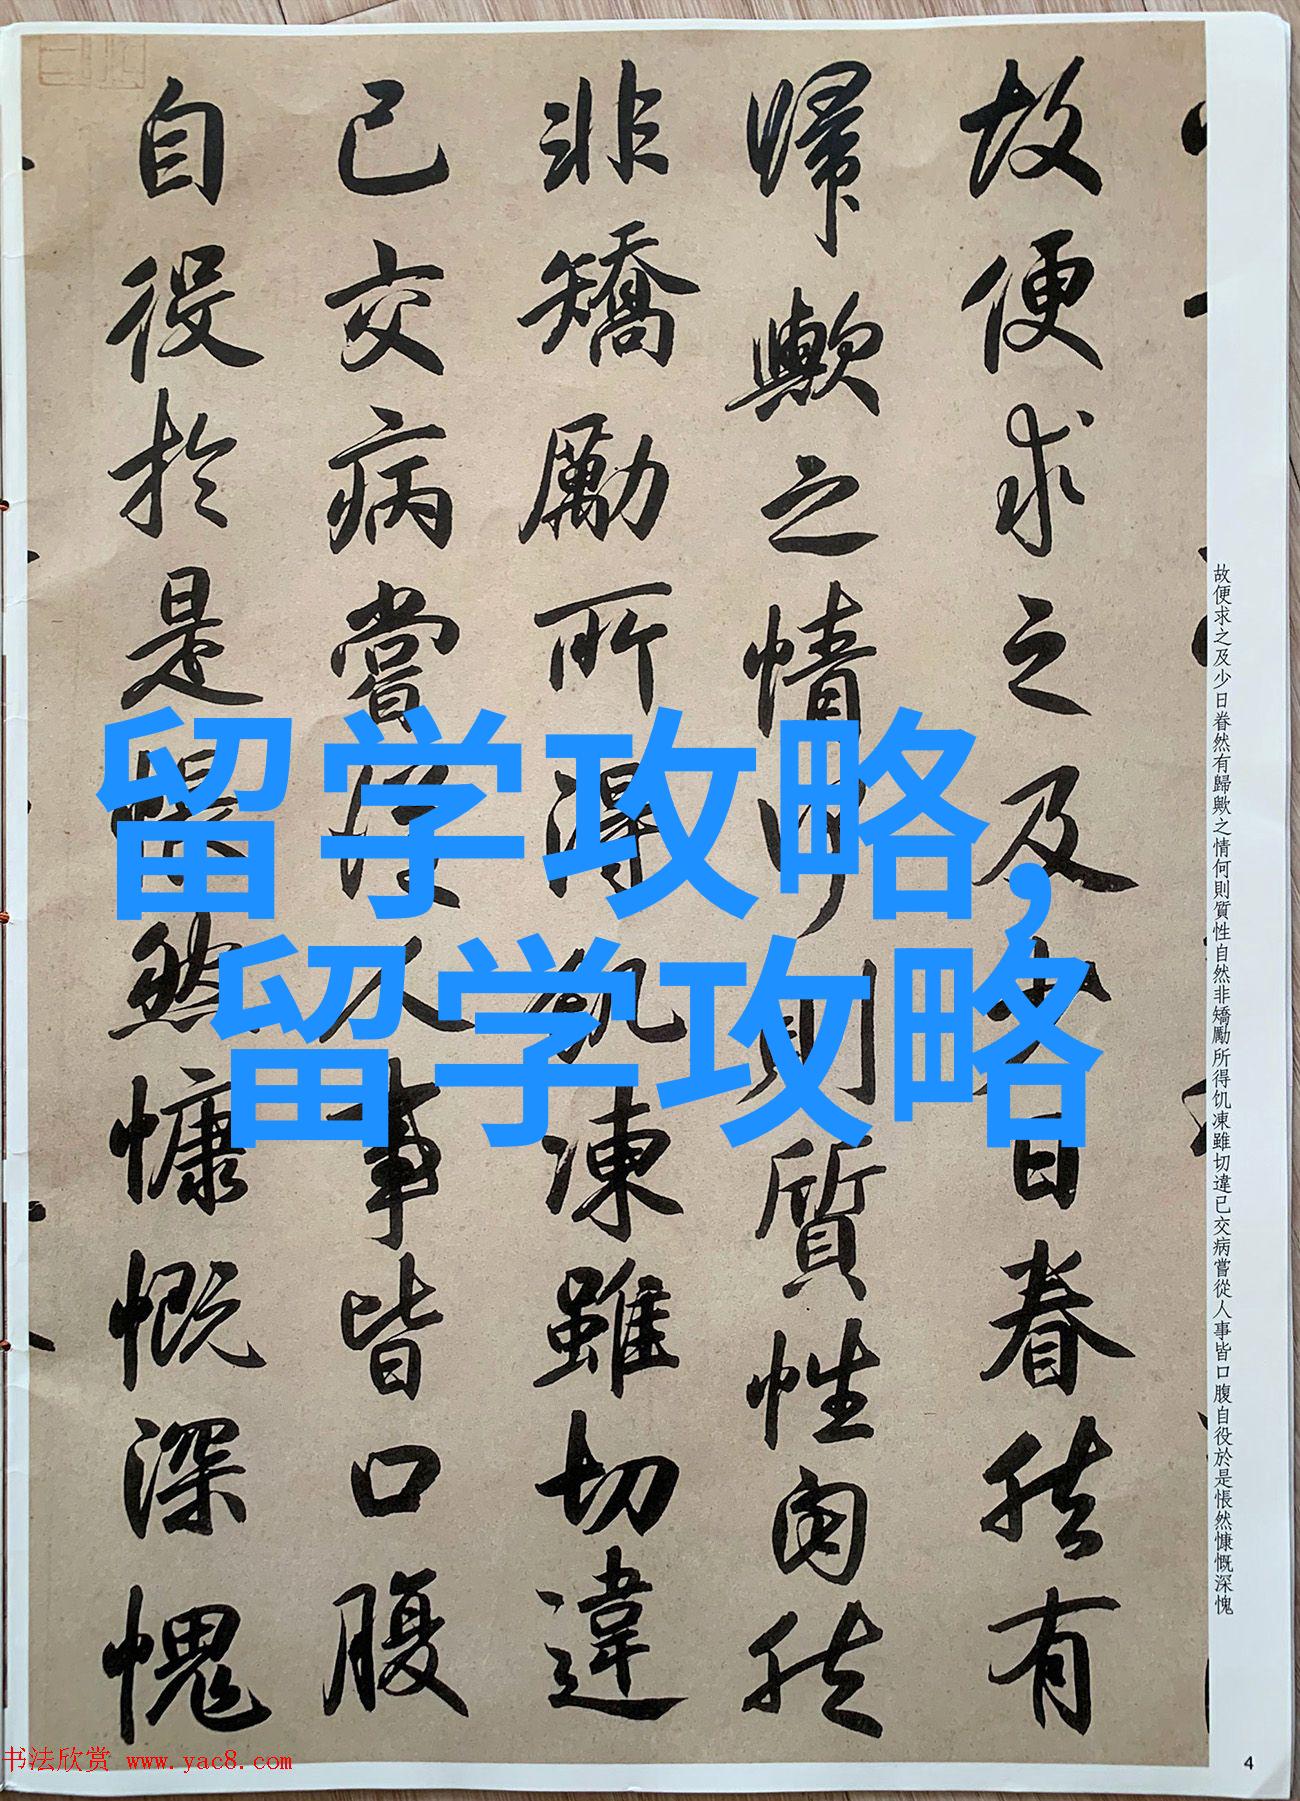 故便求之及少日眷然有
歸歟之情何則質性自然
非矯勵所得飢凍雖切違
已交病嘗從人事皆口腹
自役於是悵然慷慨深愧
故便求之及少日眷然有歸歟之情何則質性自然非矯勵所得饥凍雖切違已交病嘗從人事皆口腹自役於是悵然慷慨深愧
留学攻略,
留学攻略
书法欣赏 www.yac8.com
4